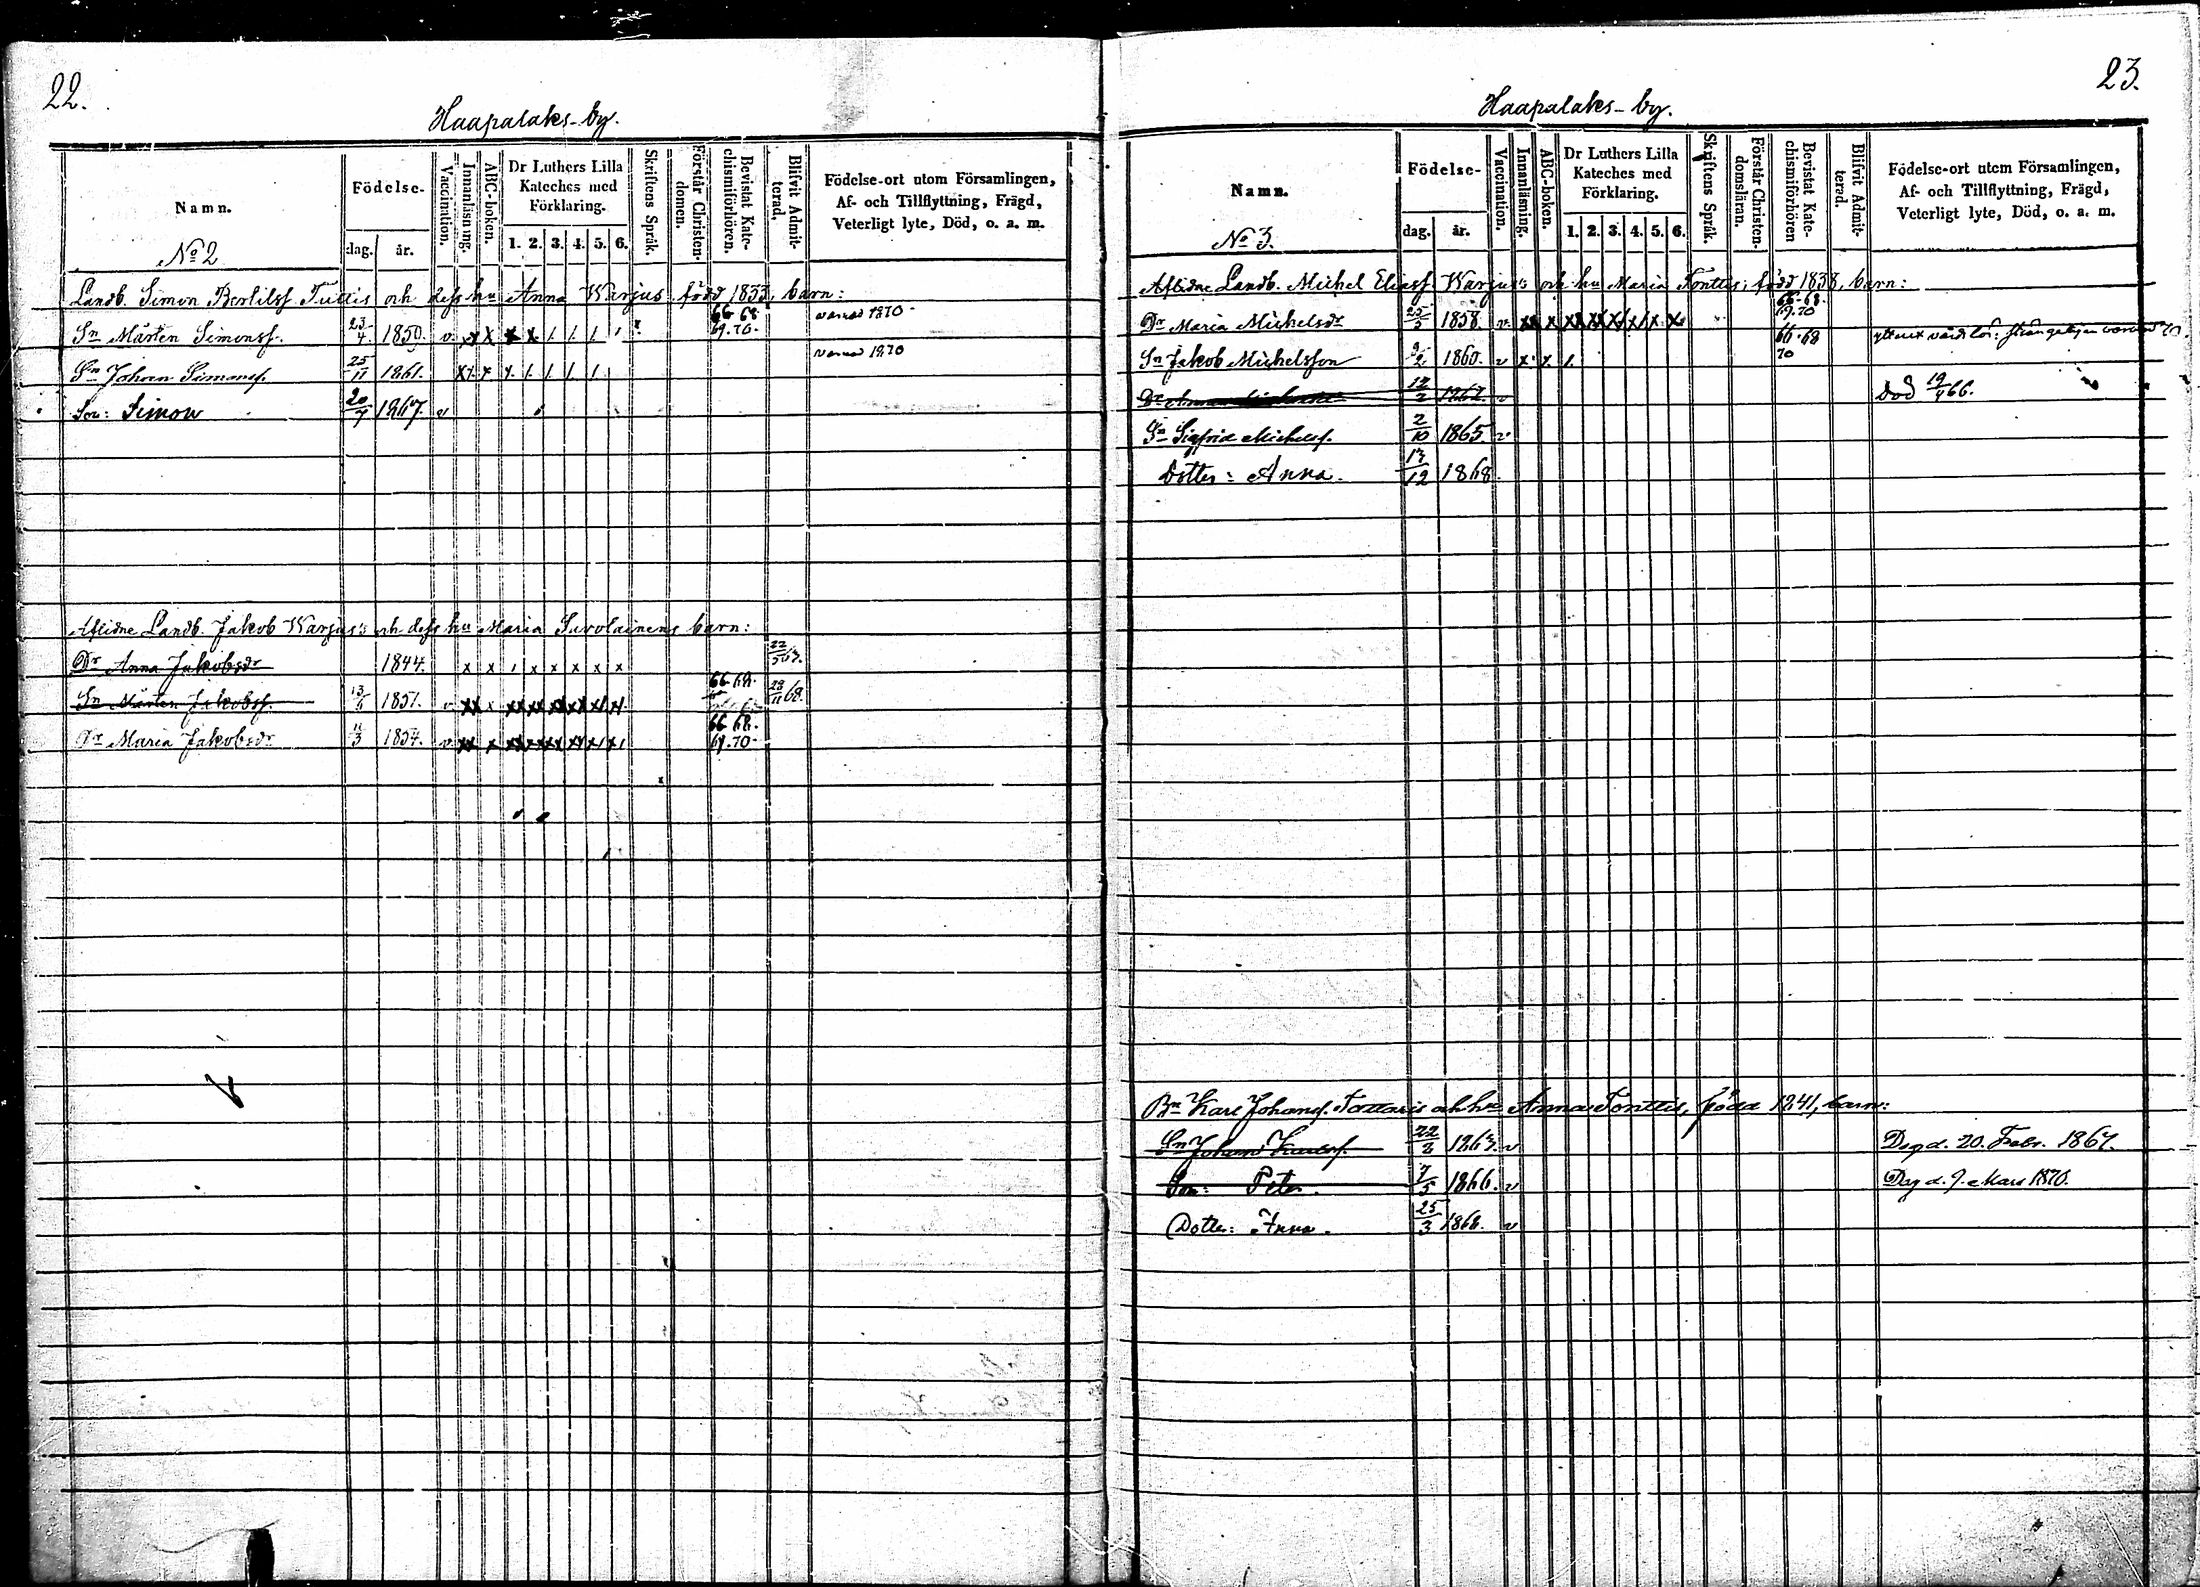 22.
Haapalaks-by.
Namn.
Födelse-
Vaccination.
Innanläsning.
ABC-boken.
Dr Luthers Lilla Kateches med Förklaring.
Skriftens Språk.
Förstår Christendomen.
Bevistat Katechismiförhören.
Blifvit Admitterad.
Födelse-ort utom Församlingen, Af- och Tillflyttning, Frägd, Veterligt lyte, Död, o. a. m.
dag. år. 1. 2. 3. 4. 5. 6.
No 2
Landb. Simon Bertilsf. Tuttis och dess hu Anna Warjus, född 1833, barn:
Sn Mårten Simonsf. 23/4 1850. v. 66-68. 69.70. warnad 1870
Sn Johan Simonsf. 25/11 1861. warnad 1870
Son: Simon 20/7 1867. v
Aflidne Landb. Jakob Warjus's och dess hu Maria Savolainens barn:
Dr Anna Jakobsdr 1844. x x x x x x x
Sn Mårten Jakobsf. 1851. v. 66 68. 68.
Dr Maria Jakobsdr 1854. v. 66 68. 69.70
23.
Haapalaks-by.
Namn.
Födelse-
Vaccination.
Innanläsning.
ABC-boken.
Dr Luthers Lilla Kateches med Förklaring.
Skriftens Språk.
Förstår Christendomsläran.
Bevistat Katechismiförhören
Blifvit Admitterad.
Födelse-ort utom Församlingen, Af- och Tillflyttning, Frägd, Veterligt lyte, Död, o. a. m.
dag. år. 1. 2. 3. 4. 5. 6.
No 3.
Aflidne Landb. Michel Eliasf. Warjus's och hu Maria Tonttis, född 1838, barn:
Dr Maria Michelsdr 25/5 1858. v. 66-68. 69.70
Sn Jakob Michelsson 1860. v 66.68 70
12/2 1862. v Död 19/4 66.
Sn Sigfrid Michelsf. 2/10 1865 v
Dotter: Anna. 13/12 1868.
Bn Karl Johansf. och hu Anna Tonttis, född 1841, barn:
Sn Johan Karlsf. 22/2 1863. v Deg d. 20. Febr. 1867.
Son: Peter. 7/5 1866. v Deg d. 9. Mars 1870.
Dotter: Anna. 25/3 1868. v